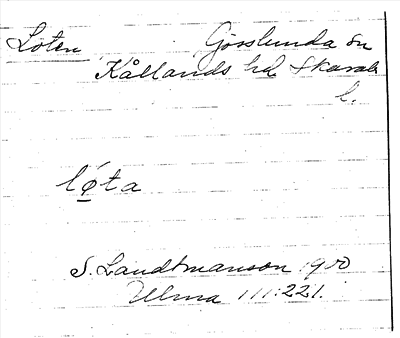 Löten Gösslunda sn
Kållands hd. Skarab.
l.
lǿ̱ta
S. Landtmanson 1950
Ulma 111:221.